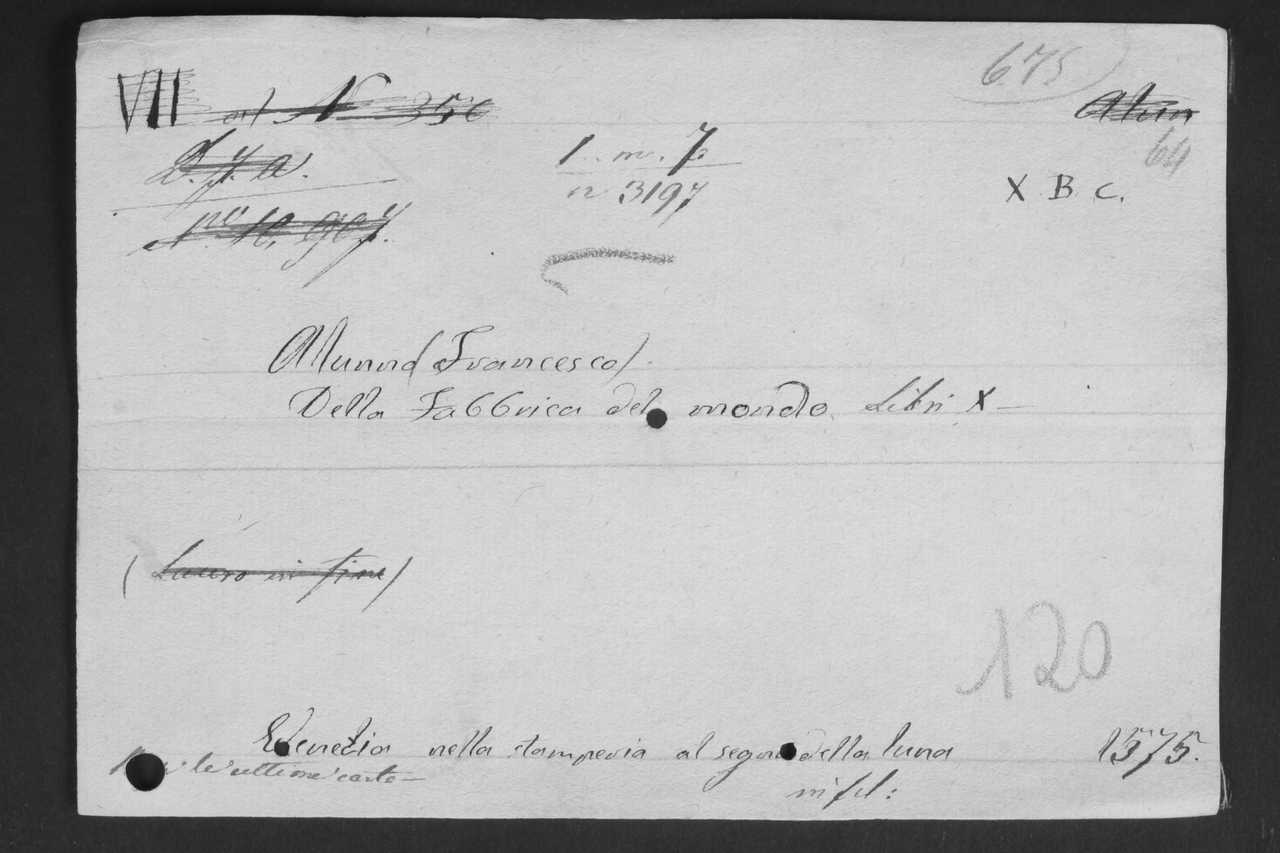 675
VII N 356
Alun
64
1. m. 7.
n 3197
X B C.
Alunno (Francesco)
Della Fabbrica del mondo Libri X
(Lauro in fine)
120
Venezia nella stamperia al segno della luna 1575.
le ultime carte
in fol: